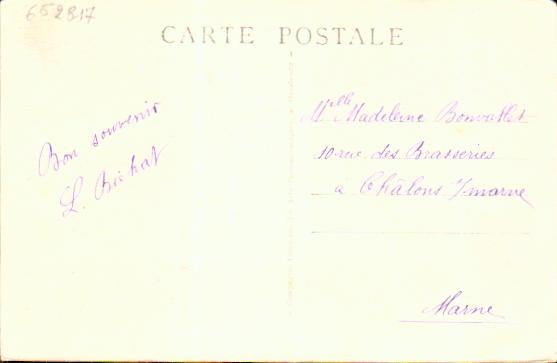 652817
CARTE POSTALE
Bon souvenir
L. Bichat
Mlle Madeleine Bonvallet
10 rue des Brasseries
à Châlons s/marne
Marne